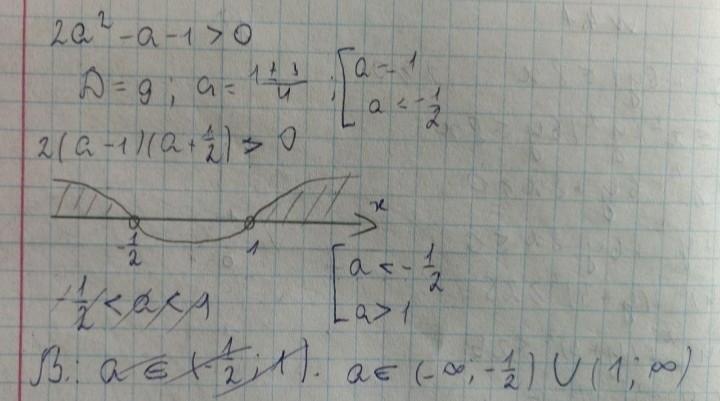 2a² - a - 1 > 0
D = 9; a = (1 ± 3)/4; [ a = 1
a = -1/2
2(a - 1)(a + 1/2) > 0
x
-1/2 1
-1/2 < a < 1
[ a < -1/2
a > 1
В.: a ∈ (-1/2; 1). a ∈ (-∞; -1/2) ∪ (1; ∞)